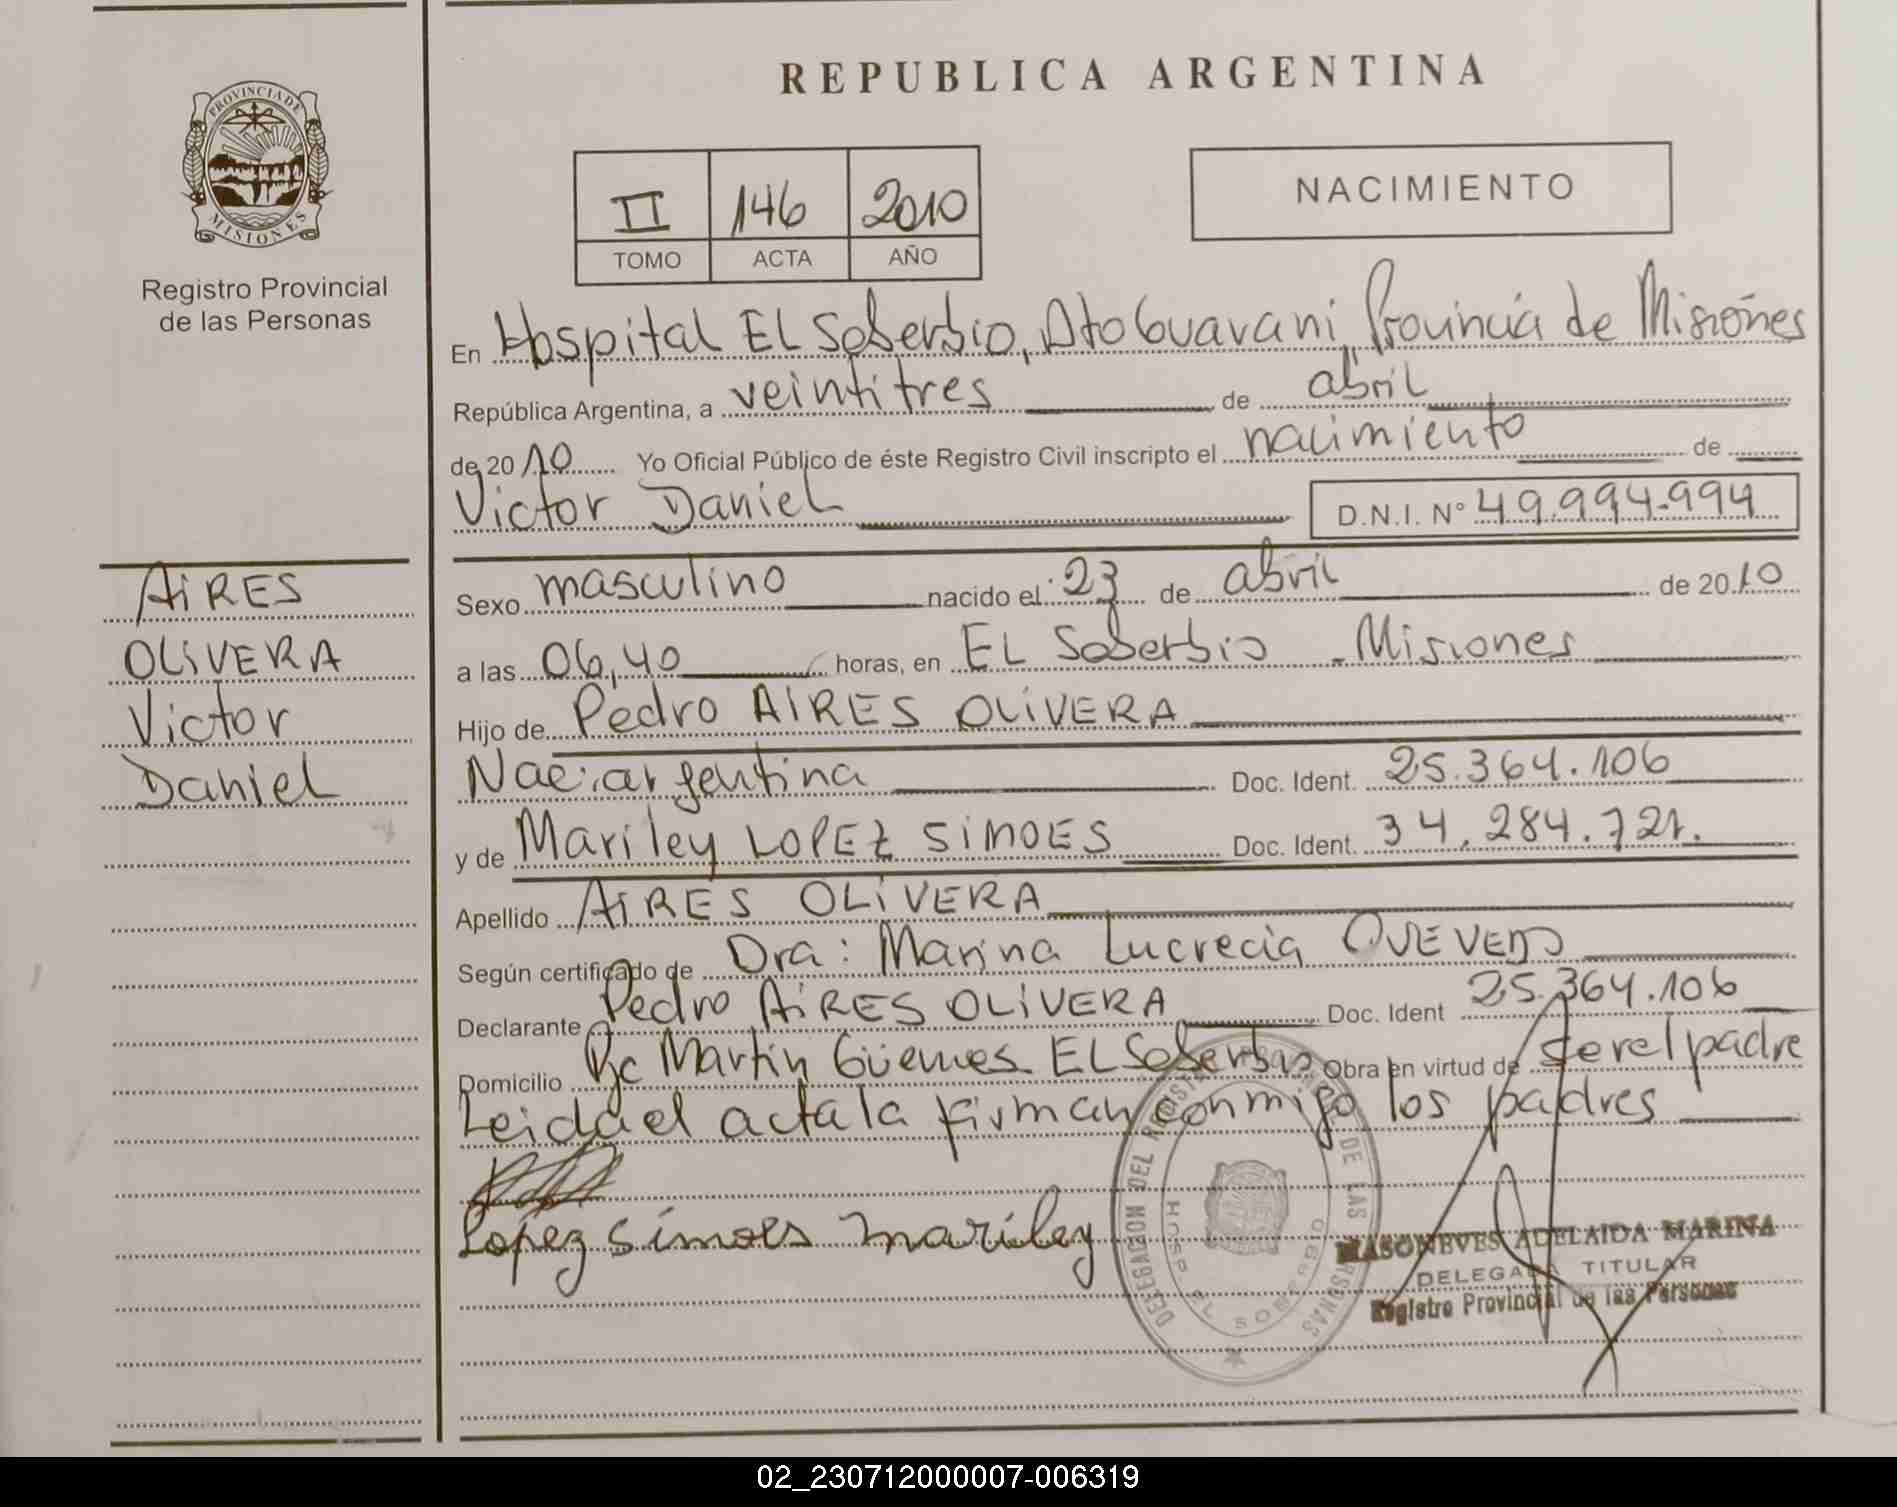 REPUBLICA ARGENTINA
PROVINCIA DE
MISIONES
Registro Provincial
de las Personas
II 146 2010
TOMO ACTA AÑO
NACIMIENTO
En Hospital EL Soberbio, Dto Guarani, Provincia de Misiones
República Argentina, a veintitres de abril
de 2010 Yo Oficial Público de éste Registro Civil inscripto el nacimiento de
Victor Daniel D.N.I. Nº 49.994.994
AIRES
OLIVERA
Victor
Daniel
Sexo masculino nacido el 23 de abril de 2010
a las 06,40 horas, en EL Soberbio - Misiones
Hijo de Pedro AIRES OLIVERA
Nac: argentina Doc. Ident. 25.364.106
y de Mariley LOPEZ SIMOES Doc. Ident. 34.284.721.
Apellido AIRES OLIVERA
Según certificado de Dra: Marina Lucrecia QUEVEDO
Declarante Pedro AIRES OLIVERA Doc. Ident 25.364.106
Domicilio Martin Güemes EL Soberbio Obra en virtud de ser el padre
Leida el acta la firman conmigo los padres
Lopez Simoes Mariley
DELEGACION DEL REGISTRO DE LAS PERSONAS
HOSP. EL SOBERBIO
MASONEVES ADELAIDA MARINA
DELEGADA TITULAR
Registro Provincial de las Personas
02_230712000007-006319